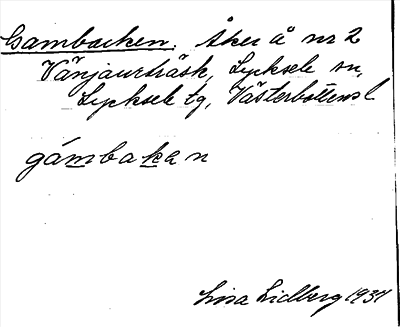 Gambacken. Åker å nr 2
Vänjaurträsk, Lycksele sn,
Lycksele tg, Västerbottens l
gámbakan
Lisa Lidberg 1937